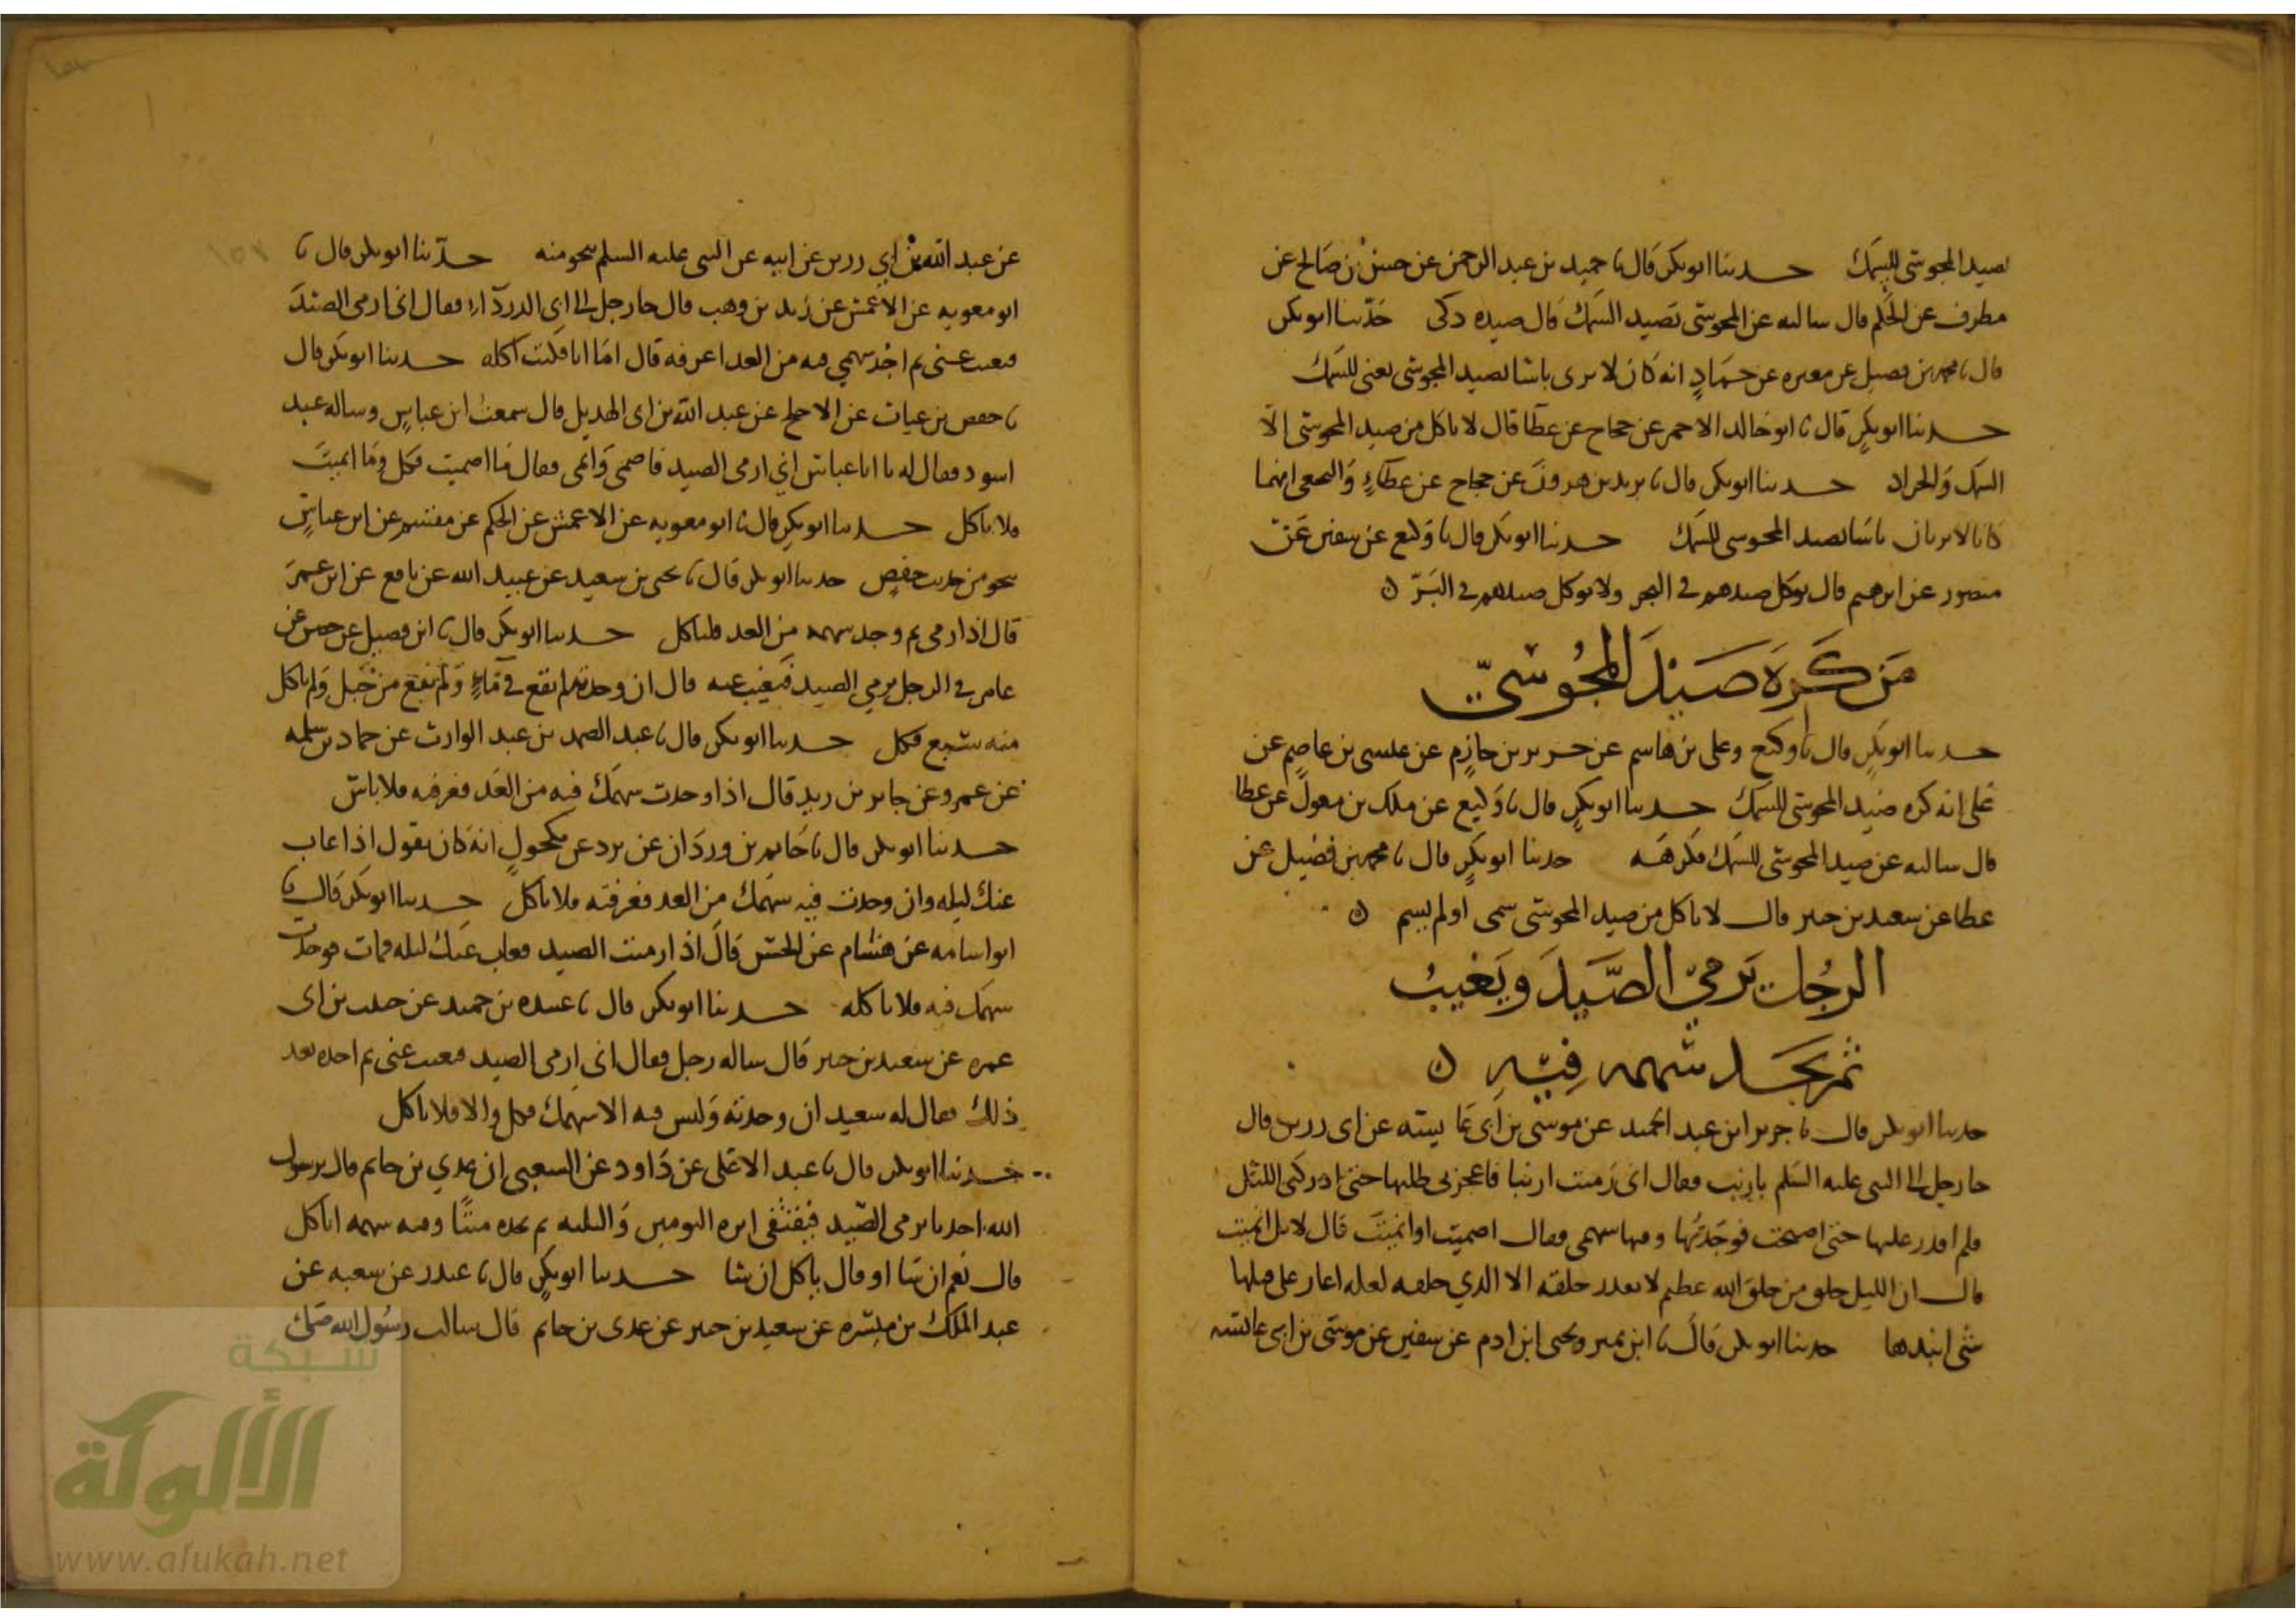 لصيد المجوسي للسمك حدثنا ابو بكر قال نا حميد بن عبد الرحمن عن حسن بن صالح عن
مطرف عن الحكم قال سالته عن المجوسي يصيد السمك قال صيده ذكي حدثنا ابو بكر
قال نا محمد بن فضيل عن مغيره عن حماد انه كان لا يرى باسا بصيد المجوسي يعني للسمك
حدثنا ابو بكر قال نا ابو خالد الاحمر عن حجاج عن عطا قال لا تاكل من صيد المجوسي الا
السمك والجراد حدثنا ابو بكر قال نا يزيد بن هرون عن حجاج عن عطاء والنخعي انهما
كانا لا يريان باسا بصيد المجوسي للسمك حدثنا ابو بكر قال نا وكيع عن سفين عن
منصور عن ابرهيم قال يوكل صيدهم في البحر ولا يوكل صيدهم في البر ه
من كره صيد المجوسي
حدثنا ابو بكر قال نا وكيع وعلى بن هاشم عن جرير بن حازم عن عيسى بن عاصم عن
على انه كره صيد المجوسي للسمك حدثنا ابو بكر قال نا وكيع عن ملك بن مغول عن عطا
قال سالته عن صيد المجوسي للسمك فكرهه حدثنا ابو بكر قال نا محمد بن فضيل عن
عطا عن سعيد بن جبير قال لا تاكل من صيد المجوسي سمى او لم يسم ه
الرجل يرمي الصيد ويغيب
ثم يجد سهمه فيه ه
حدثنا ابو بكر قال نا جرير ابن عبد الحميد عن موسى بن ابي عايشه عن ابي رزين قال
جا رجل الى النبي عليه السلم بارنب فقال اني رميت ارنبا فاعجزني طلبها حتى ادركني الليل
فلم اقدر عليها حتى اصبحت فوجدتها وفيها سهمي فقال اصميت او انميت قال لا بل انميت
قال ان الليل خلق من خلق الله عظيم لا يقدر خلقه الا الذي خلقه لعله اعان على قتلها
شى انبذها حدثنا ابو بكر قال نا ابن نمير ويحيى ابن ادم عن سفين عن موسى بن ابي عايشه
عن عبد الله بن ابي رزين عن ابيه عن النبي عليه السلم بنحو منه حدثنا ابو بكر قال نا
ابو معويه عن الاعمش عن زيد بن وهب قال جا رجل الى ابي الدرداء فقال اني ارمي الصيد
فيغيب عني ثم اجد سهمي فيه من الغد اعرفه قال اما انا فكنت اكله حدثنا ابو بكر قال
نا حفص بن غياث عن الاجلح عن عبد الله بن ابي الهذيل قال سمعت ابن عباس وساله عبد
اسود فقال له يا ابا عباس اني ارمي الصيد فاصمي وانمي فقال ما اصميت فكل وما انميت
فلا تاكل حدثنا ابو بكر قال نا ابو معويه عن الاعمش عن الحكم عن مقسم عن ابن عباس
بنحو من حديث حفص حدثنا ابو بكر قال نا يحيى بن سعيد عن عبيد الله عن نافع عن ابن عمر
قال اذا رمى ثم وجد سهمه من الغد فلياكل حدثنا ابو بكر قال نا ابن فضيل عن حصين عن
عامر في الرجل يرمي الصيد فيغيب عنه قال ان وجدته لم يقع في ماء ولم يقع من جبل ولم ياكل
منه سبع فكل حدثنا ابو بكر قال نا عبد الصمد بن عبد الوارث عن حماد بن سلمه
عن عمرو عن جابر بن زيد قال اذا وجدت سهمك فيه من الغد فعرفته فلا باس
حدثنا ابو بكر قال نا حاتم بن وردان عن برد عن مكحول انه كان يقول اذا غاب
عنك ليله وان وجدت فيه سهمك من الغد فعرفته فلا تاكل حدثنا ابو بكر قال نا
ابو اسامه عن هشام عن الحسن قال اذا رميت الصيد فغاب عنك ليله فمات فوجدت
سهمك فيه فلا تاكله حدثنا ابو بكر قال نا عبيده بن حميد عن حبيب بن ابي
عمره عن سعيد بن جبير قال ساله رجل فقال اني ارمي الصيد فيغيب عني ثم اجده بعد
ذلك فقال له سعيد ان وجدته وليس فيه الا سهمك فكل والا فلا تاكل
حدثنا ابو بكر قال نا عبد الاعلى عن داود عن الشعبي ان عدي بن حاتم قال يرسول
الله احدنا يرمي الصيد فيقتفى اثره اليومين والثلثه ثم يجده ميتا وفيه سهمه اياكل
قال نعم ان شا او قال ياكل ان شا حدثنا ابو بكر قال نا غندر عن شعبه عن
عبد الملك بن ميسره عن سعيد بن جبير عن عدى بن حاتم قال سالت رسول الله صلى
شبكة
الألوكة
www.alukah.net